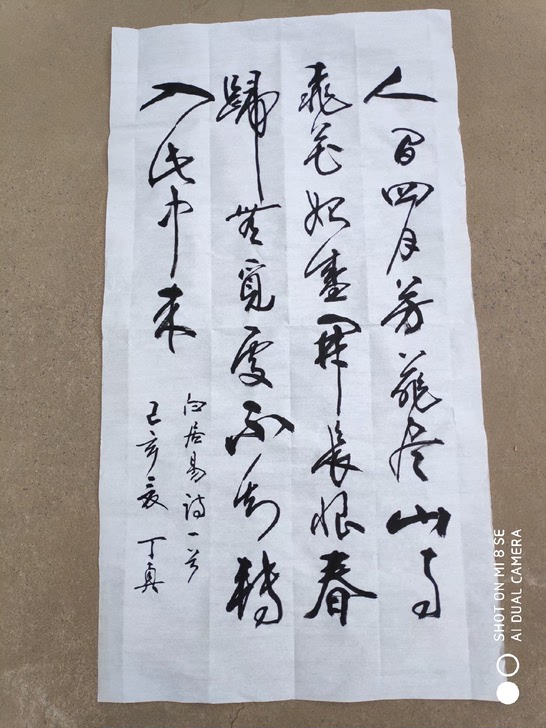 人間四月芳菲尽山寺
桃花始盛開長恨春
歸無覓處不知轉
入此中来
白居易詩一首
己亥夏 丁真
SHOT ON MI 8 SE
AI DUAL CAMERA